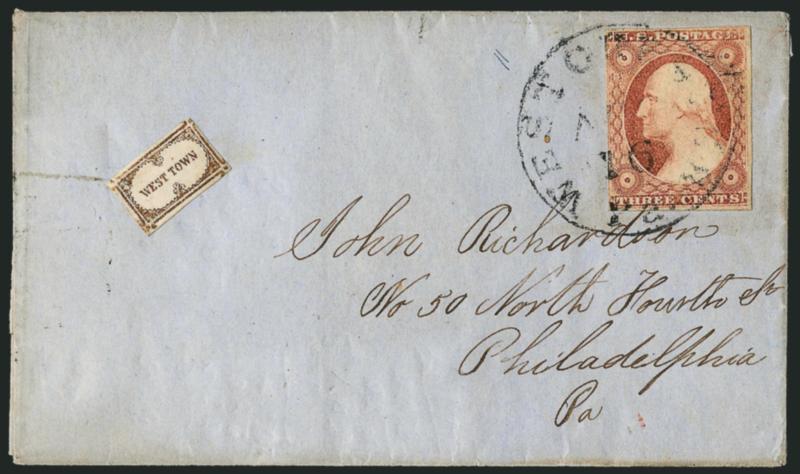 U.S. POSTAGE
THREE CENTS
WESTO
WEST TOWN
John Richardson
No 50 North Fourth St
Philadelphia
Pa